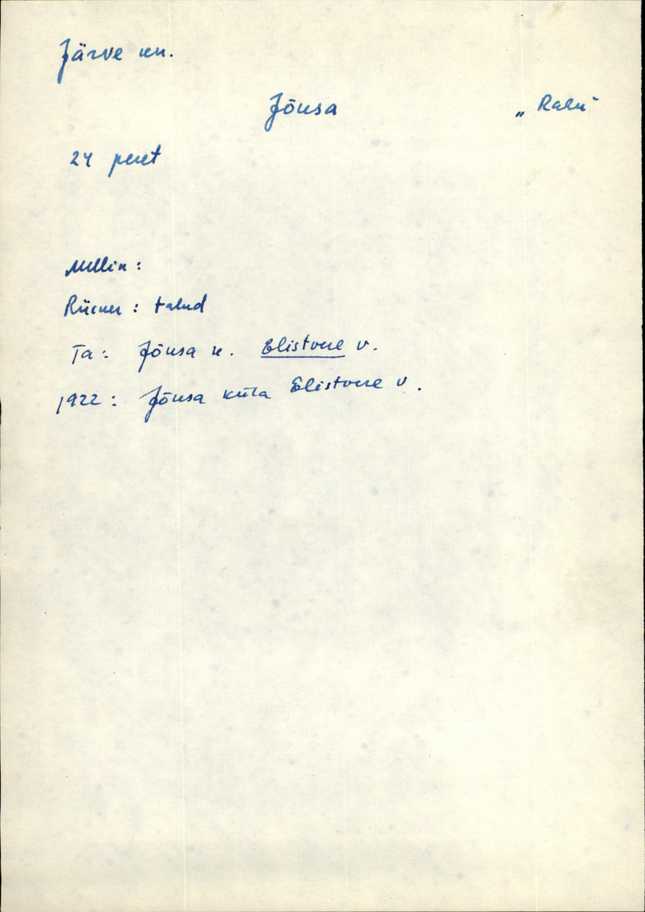 Järve kn.
Jõusa „Rahu“
24 peret
Mellin:
Rücker: talud
Ta: Jõusa k. Elistvere v.
1922: Jõusa küla Elistvere v.